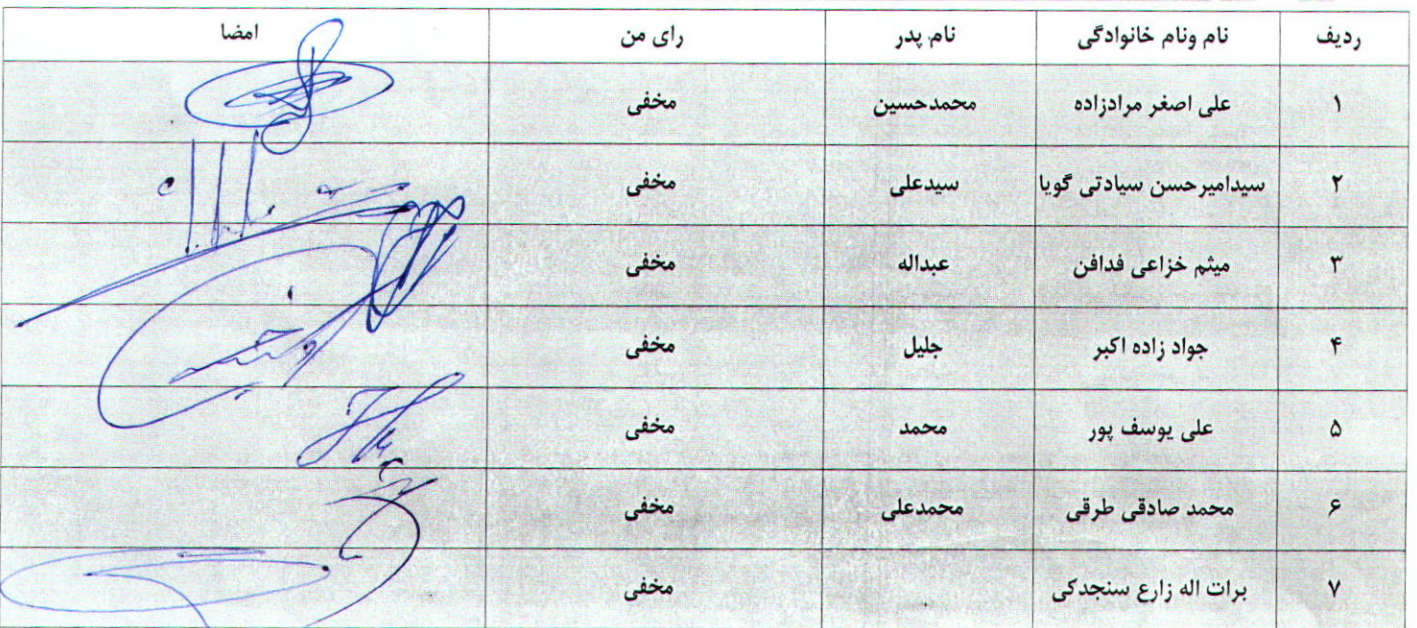 ردیف نام ونام خانوادگی نام پدر رای من امضا
۱ علی اصغر مرادزاده محمدحسین مخفی
۲ سیدامیرحسن سیادتی گویا سیدعلی مخفی
۳ میثم خزاعی فدافن عبداله مخفی
۴ جواد زاده اکبر جلیل مخفی
۵ علی یوسف پور محمد مخفی
۶ محمد صادقی طرقی محمدعلی مخفی
۷ برات اله زارع سنجدکی مخفی